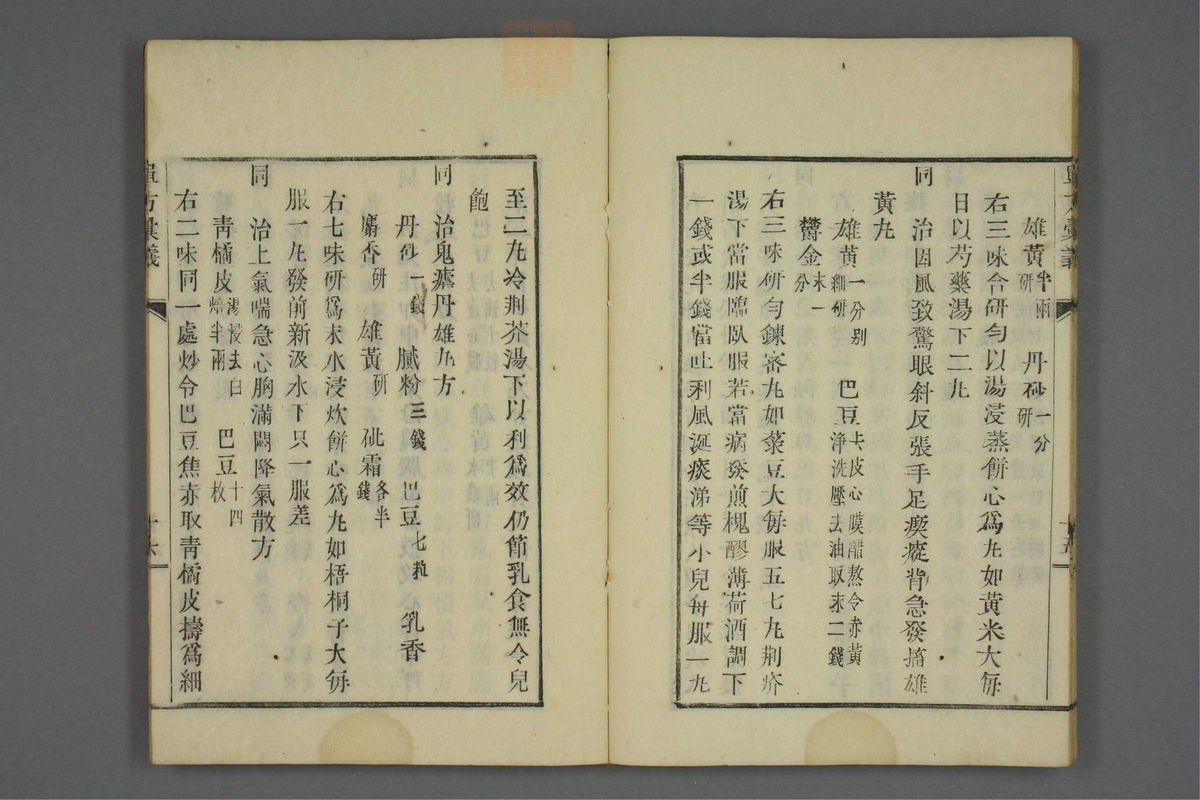 雄黃半兩研　丹砂一分研
右三味合研勻以湯浸蒸餅心爲丸如黃米大每
日以芍藥湯下二丸
同　治因風致驚眼斜反張手足瘈瘲背急發搐雄
黃丸
雄黃一分别細研　巴豆去皮心膜醋熬令赤黃淨洗壓去油取末二錢
鬱金末一分
右三味研勻鍊蜜丸如菉豆大每服五七丸荆芥
湯下當服臨臥服若當病發煎槐醪薄荷酒調下
一錢或半錢當吐利風涎痰涕等小兒每服一丸
至二丸冷荆芥湯下以利爲效仍節乳食無令兒
飽
同　治鬼瘧丹雄丸方
丹砂一錢　膩粉三錢　巴豆七粒　乳香
麝香研　雄黃研　砒霜各半錢
右七味研爲末水浸炊餅心爲丸如梧桐子大每
服一丸發前新汲水下只一服差
同　治上氣喘急心胸滿悶降氣散方
青橘皮湯浸去白焙半兩　巴豆十四枚
右二味同一處炒令巴豆焦赤取青橘皮擣爲細
十六